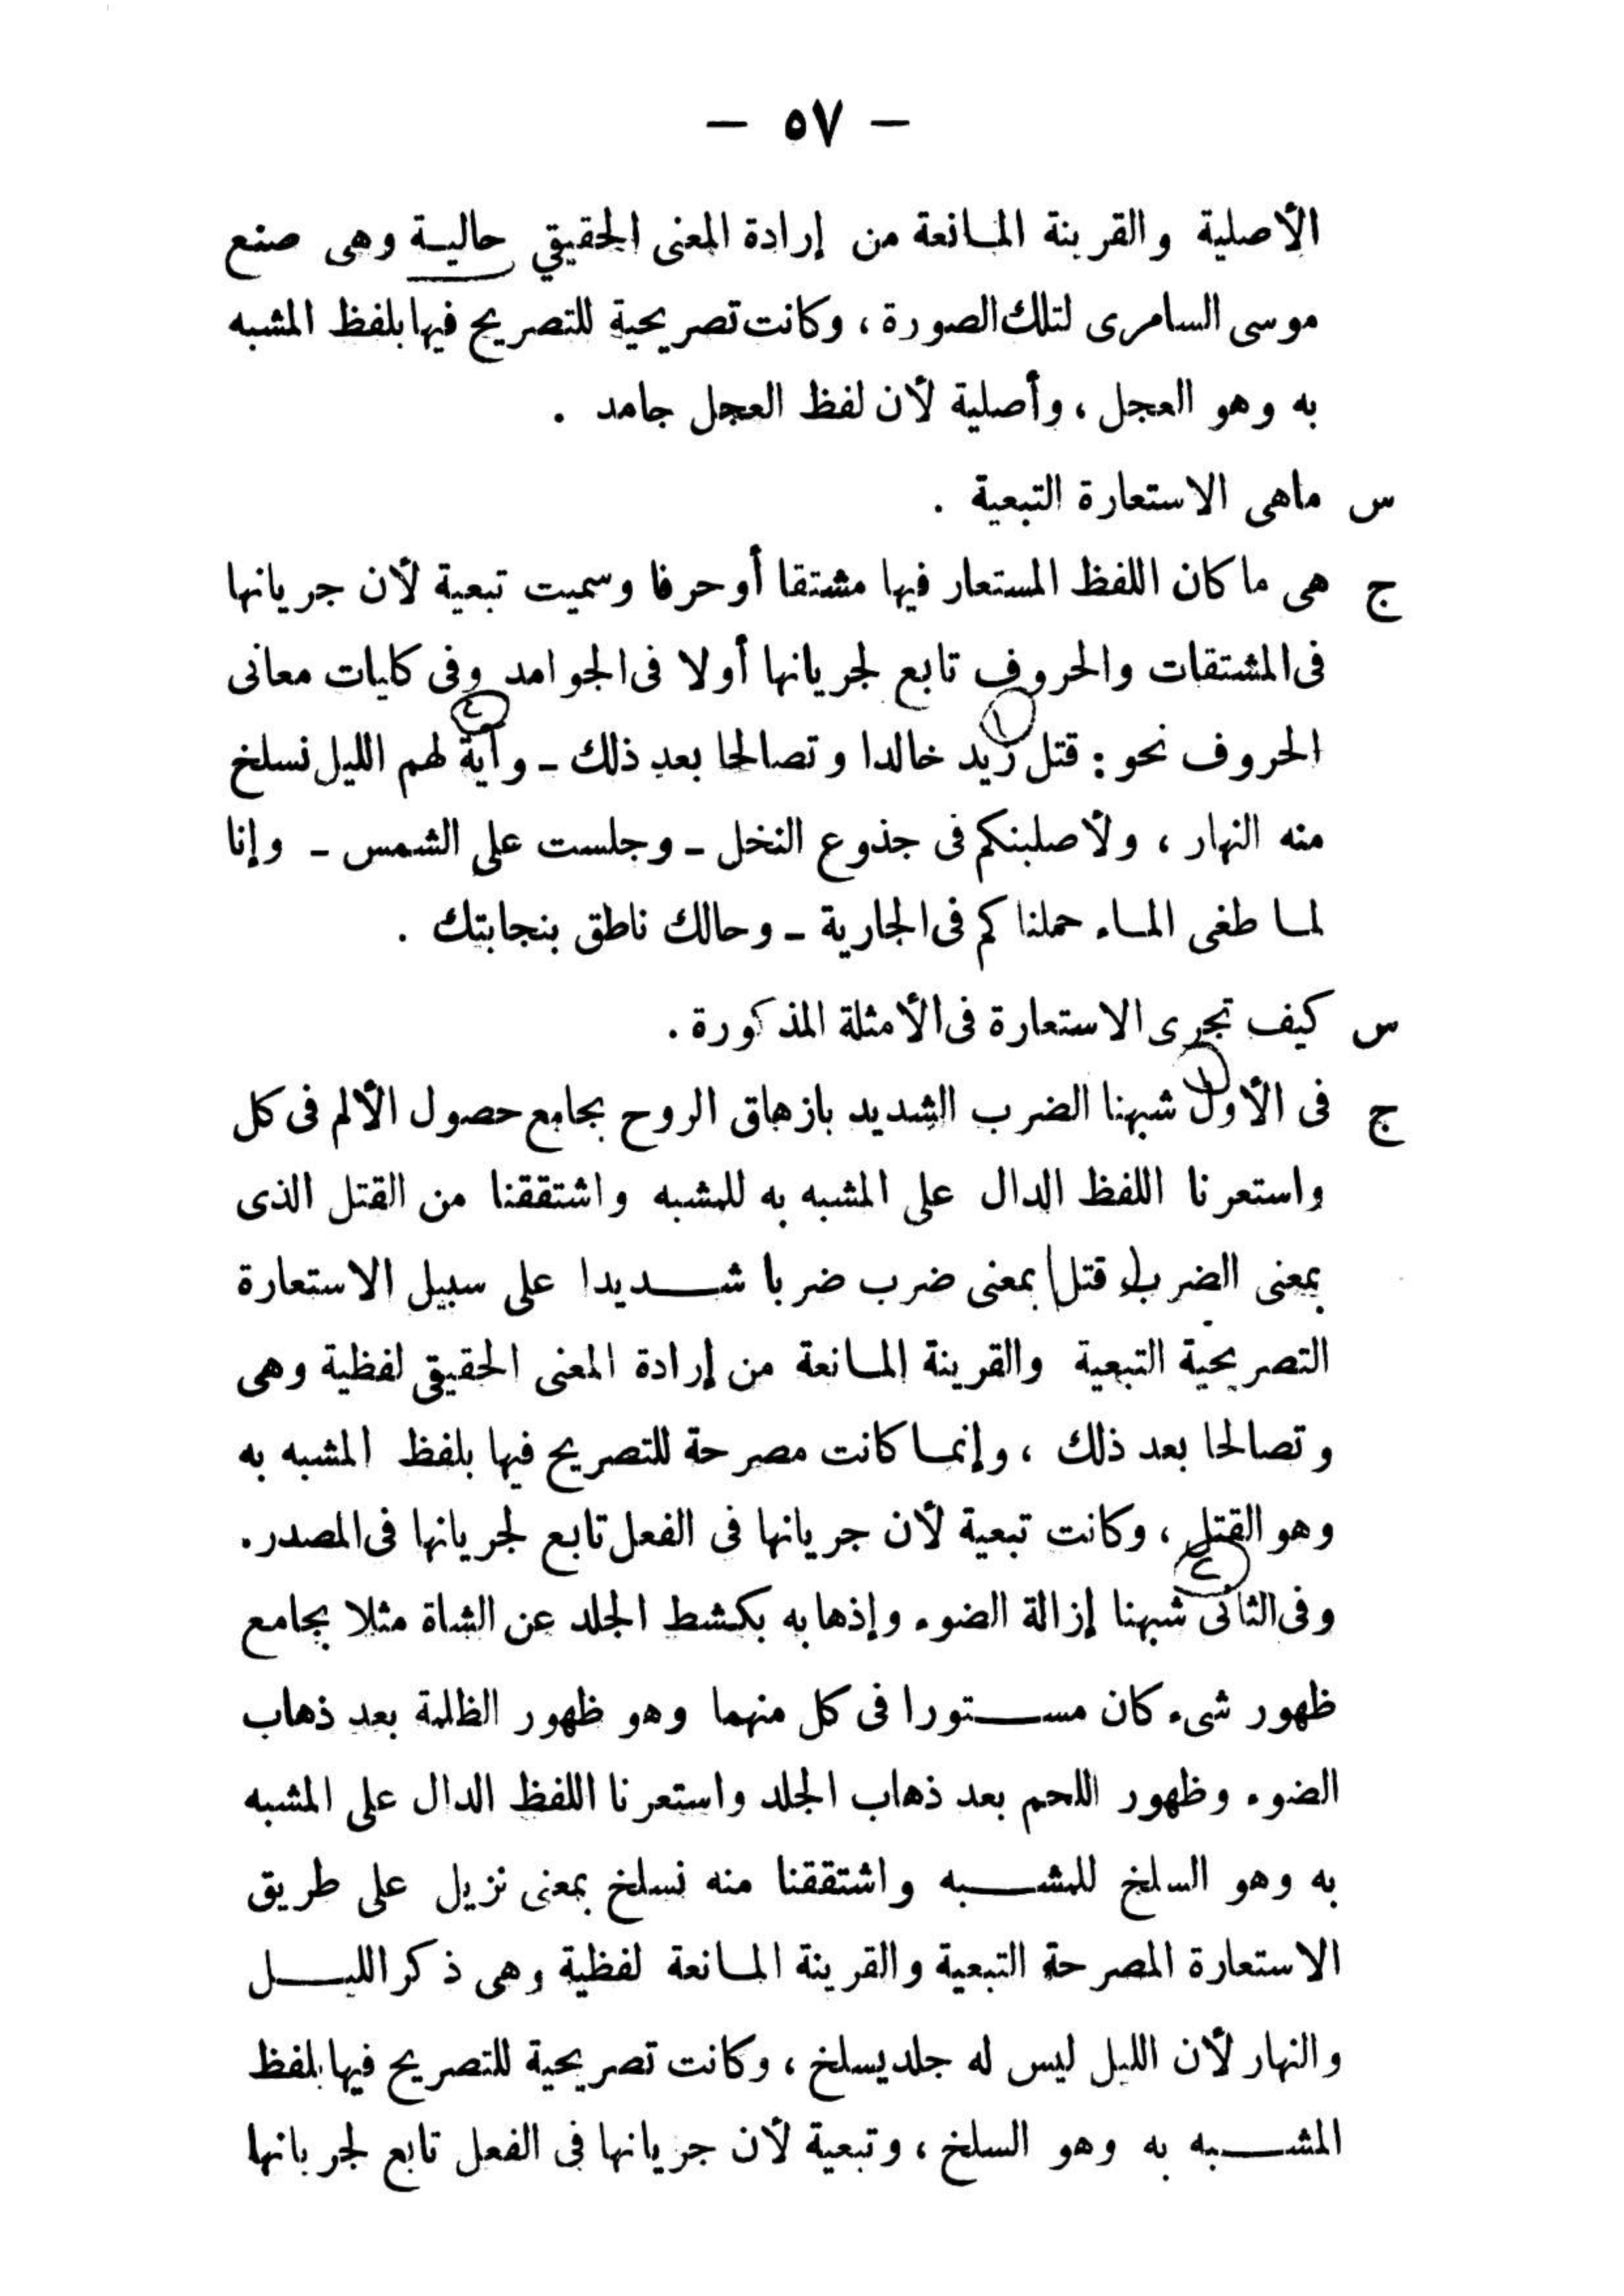 — ٥٧ —
الأصلية والقرينة المانعة من إرادة المعنى الحقيقي حالية وهى صنع
موسى السامرى لتلك الصورة ، وكانت تصريحية للتصريح فيها بلفظ المشبه
به وهو العجل ، وأصلية لأن لفظ العجل جامد .
س ماهى الاستعارة التبعية .
ج هى ما كان اللفظ المستعار فيها مشتقا أو حرفا وسميت تبعية لأن جريانها
فى المشتقات والحروف تابع لجريانها أولا فى الجوامد وفى كليات معانى
الحروف نحو : قتل زيد خالدا وتصالحا بعد ذلك ــ وآية لهم الليل نسلخ
منه النهار ، ولأصلبنكم فى جذوع النخل ــ وجلست على الشمس ــ وإنا
لما طغى الماء حملناكم فى الجارية ــ وحالك ناطق بنجابتك .
س كيف تجرى الاستعارة فى الأمثلة المذكورة .
ج فى الأول شبهنا الضرب الشديد بازهاق الروح بجامع حصول الألم فى كل
واستعرنا اللفظ الدال على المشبه به للمشبه واشتققنا من القتل الذى
بمعنى الضرب قتل بمعنى ضرب ضربا شديدا على سبيل الاستعارة
التصريحية التبعية والقرينة المانعة من إرادة المعنى الحقيقى لفظية وهى
وتصالحا بعد ذلك ، وإنما كانت مصرحة للتصريح فيها بلفظ المشبه به
وهو القتل ، وكانت تبعية لأن جريانها فى الفعل تابع لجريانها فى المصدر .
وفى الثانى شبهنا إزالة الضوء وإذهابه بكشط الجلد عن الشاة مثلا بجامع
ظهور شىء كان مستورا فى كل منهما وهو ظهور الظلمة بعد ذهاب
الضوء وظهور اللحم بعد ذهاب الجلد واستعرنا اللفظ الدال على المشبه
به وهو السلخ للمشبه واشتققنا منه نسلخ بمعنى نزيل على طريق
الاستعارة المصرحة التبعية والقرينة المانعة لفظية وهى ذكر الليل
والنهار لأن الليل ليس له جلد يسلخ ، وكانت تصريحية للتصريح فيها بلفظ
المشبه به وهو السلخ ، وتبعية لأن جريانها فى الفعل تابع لجريانها